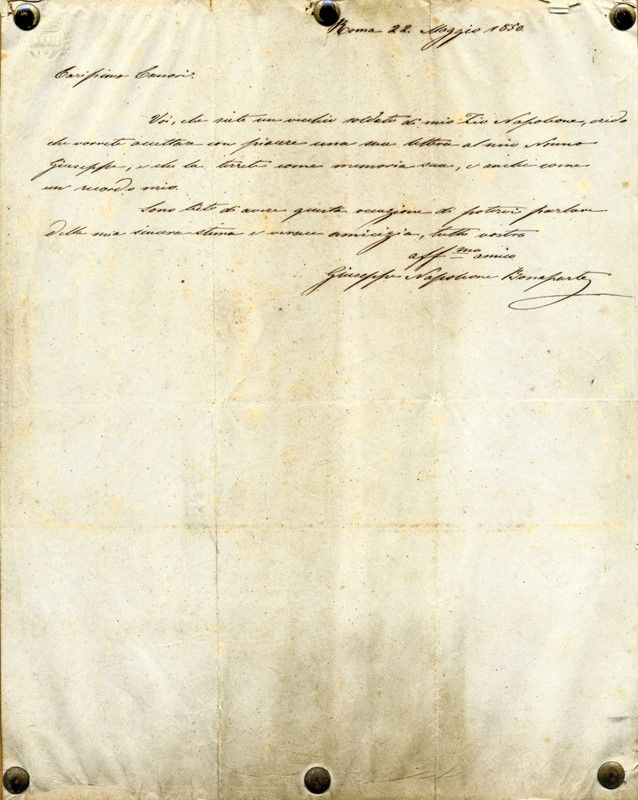 Roma 22. Maggio 1850.
Carissimo Canori.
Voi, che siete un vecchio soldato di mio Zio Napoleone, credo
che vorrete accettare con piacere una sua lettera al mio Nonno
Giuseppe, e che la terrete come memoria sua, e anche come
un ricordo mio.
Sono lieto di avere questa occasione di potervi parlare
della mia sincera stima e verace amicizia, tutto vostro
aff.mo amico
Giuseppe Napoleone Bonaparte